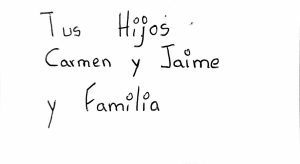 Tus Hijos
Carmen y Jaime
y Familia